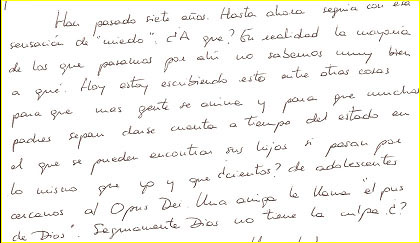 Han pasado siete años. Hasta ahora seguía con esa
sensación de "miedo". ¿A que? En realidad la mayoría
de los que pasamos por ahí no sabemos muy bien
a qué. Hoy estoy escribiendo esto entre otras cosas
para que mas gente se anime y para que muchos
padres sepan darse cuenta a tiempo del estado en
el que se pueden encontrar sus hijos si pasan por
lo mismo que yo y que ¿cientos? de adolescentes
cercanos al Opus Dei. Una amiga le llama "el pus
de Dios". Seguramente Dios no tiene la culpa ¿?